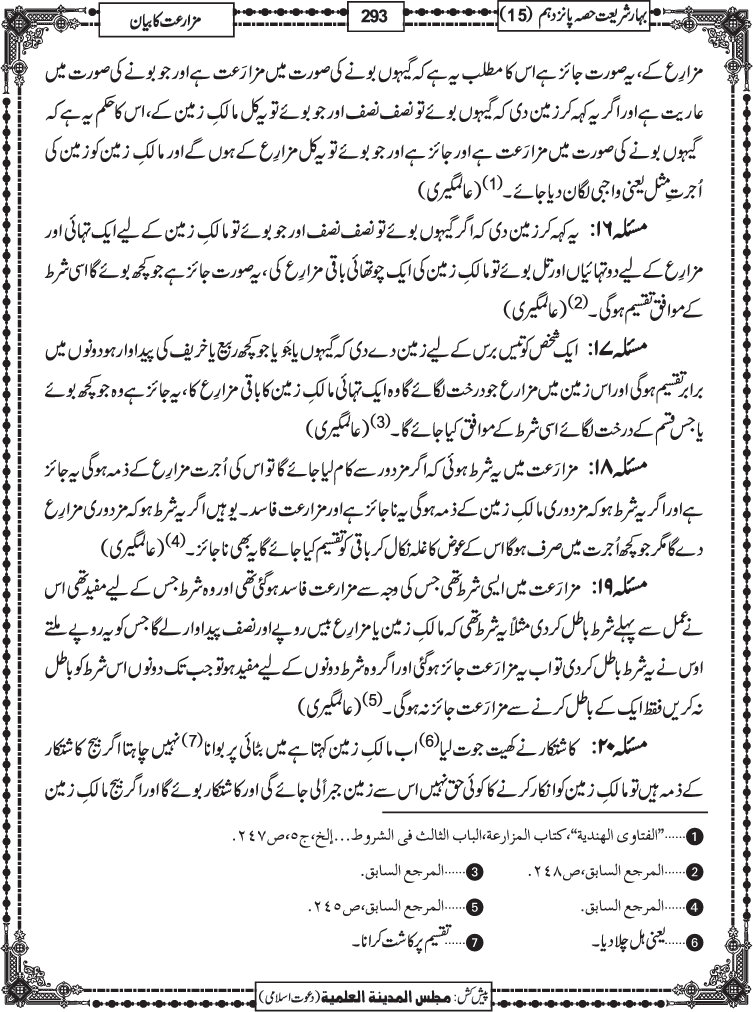 بہار شریعت حصہ پانزدہم (15)
293
مزارعت کا بیان
مزارِع کے، یہ صورت جائز ہے اس کا مطلب یہ ہے کہ گیہوں بونے کی صورت میں مزارَعت ہے اور جو بونے کی صورت میں
عاریت ہے اور اگر یہ کہہ کر زمین دی کہ گیہوں بوئے تو نصف نصف اور جو بوئے تو یہ کل مالکِ زمین کے، اس کا حکم یہ ہے کہ
گیہوں بونے کی صورت میں مزارَعت ہے اور جائز ہے اور جو بوئے تو یہ کل مزارِع کے ہوں گے اور مالکِ زمین کو زمین کی
اُجرتِ مثل یعنی واجبی لگان دیا جائے۔(1)(عالمگیری)
مسئلہ ۱۶: یہ کہہ کر زمین دی کہ اگر گیہوں بوئے تو نصف نصف اور جو بوئے تو مالکِ زمین کے لیے ایک تہائی اور
مزارِع کے لیے دو تہائیاں اور تل بوئے تو مالکِ زمین کی ایک چوتھائی باقی مزارِع کی، یہ صورت جائز ہے جو کچھ بوئے گا اسی شرط
کے موافق تقسیم ہوگی۔(2)(عالمگیری)
مسئلہ ۱۷: ایک شخص کو تیس برس کے لیے زمین دے دی کہ گیہوں یا جَو یا جو کچھ ربیع یا خریف کی پیداوار ہو دونوں میں
برابر تقسیم ہوگی اور اس زمین میں مزارع جو درخت لگائے گا وہ ایک تہائی مالکِ زمین کا باقی مزارِع کا، یہ جائز ہے وہ جو کچھ بوئے
یا جس قسم کے درخت لگائے اسی شرط کے موافق کیا جائے گا۔(3)(عالمگیری)
مسئلہ ۱۸: مزارَعت میں یہ شرط ہوئی کہ اگر مزدور سے کام لیا جائے گا تو اس کی اُجرت مزارِع کے ذمہ ہوگی یہ جائز
ہے اور اگر یہ شرط ہو کہ مزدوری مالکِ زمین کے ذمہ ہوگی یہ ناجائز ہے اور مزارعت فاسد۔ یوہیں اگر یہ شرط ہو کہ مزدوری مزارِع
دے گا مگر جو کچھ اُجرت میں صرف ہوگا اس کے عوض کا غلہ نکال کر باقی کو تقسیم کیا جائے گا یہ بھی ناجائز۔(4)(عالمگیری)
مسئلہ ۱۹: مزارَعت میں ایسی شرط تھی جس کی وجہ سے مزارعت فاسد ہوگئی تھی اور وہ شرط جس کے لیے مفید تھی اس
نے عمل سے پہلے شرط باطل کردی مثلاً یہ شرط تھی کہ مالکِ زمین یا مزارِع بیس روپے اور نصف پیداوار لے گا جس کو یہ روپے ملتے
اوس نے یہ شرط باطل کردی تو اب یہ مزارَعت جائز ہوگئی اور اگر وہ شرط دونوں کے لیے مفید ہو تو جب تک دونوں اس شرط کو باطل
نہ کریں فقط ایک کے باطل کرنے سے مزارَعت جائز نہ ہوگی۔(5)(عالمگیری)
مسئلہ ۲۰: کاشتکار نے کھیت جوت لیا(6) اب مالکِ زمین کہتا ہے میں بٹائی پر بوانا(7) نہیں چاہتا اگر بیج کاشتکار
کے ذمہ ہیں تو مالکِ زمین کو انکار کرنے کا کوئی حق نہیں اس سے زمین جبراً لی جائے گی اور کاشتکار بوئے گا اور اگر بیج مالکِ زمین
1......"الفتاوی الھندیۃ"، کتاب المزارعۃ، الباب الثالث فی الشروط...إلخ، ج٥، ص٢٤٧.
2......المرجع السابق، ص٢٤٨. 3......المرجع السابق.
4......المرجع السابق. 5......المرجع السابق، ص٢٤٥.
6......یعنی ہل چلا دیا۔ 7......تقسیم پر کاشت کرانا۔
پیش کش: مجلس المدینۃ العلمیۃ (دعوت اسلامی)